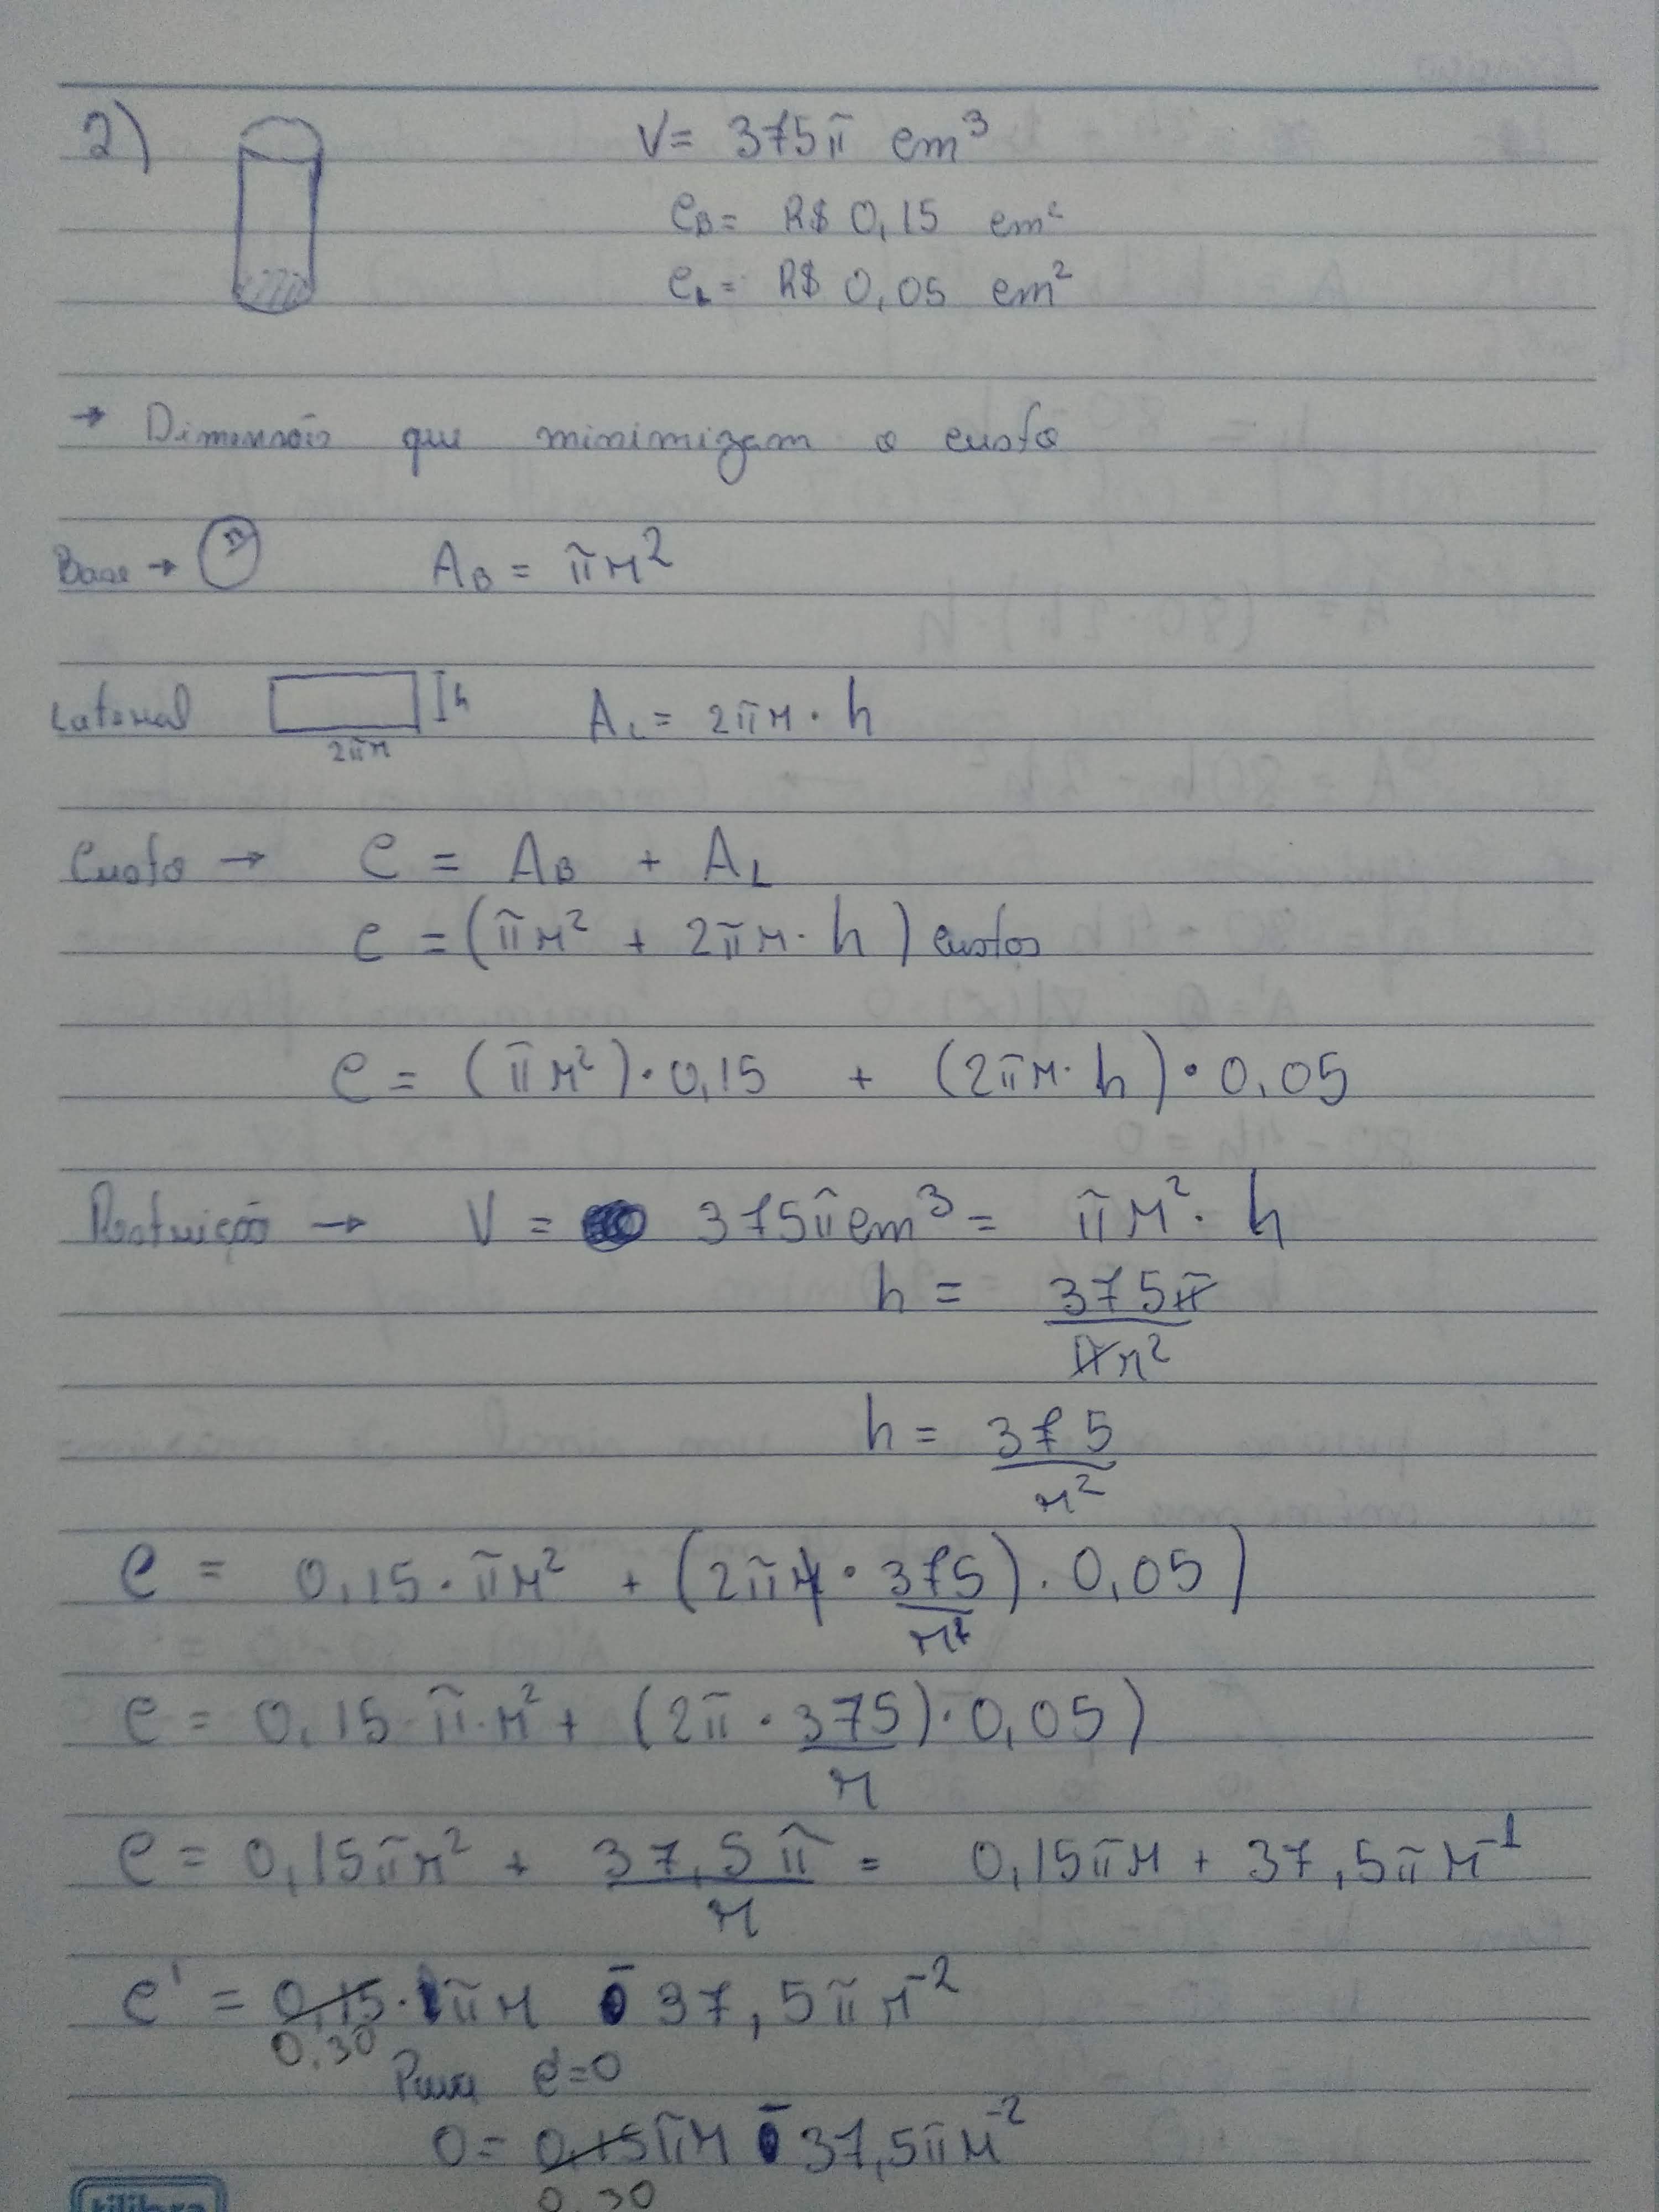 2)
V = 375π cm³
CB = R$ 0,15 cm²
CL = R$ 0,05 cm²
→ Dimensões que minimizam o custo
Base → r AB = πr²
Lateral h AL = 2πr · h
2πr
Custo → C = AB + AL
C = (πr² + 2πr · h) custos
C = (πr²) · 0,15 + (2πr · h) · 0,05
Restrição → V = 375πcm³ = πr² · h
h = 375π
πr²
h = 375
r²
C = 0,15 · πr² + (2πr · 375) · 0,05)
r²
C = 0,15 · π · r² + (2π · 375) · 0,05)
r
C = 0,15πr² + 37,5π = 0,15πr + 37,5πr⁻¹
r
C' = 0,15 · πr - 37,5πr⁻²
0,30
Para C'=0
0 = 0,15πr - 37,5πr⁻²
0,30
tilibra